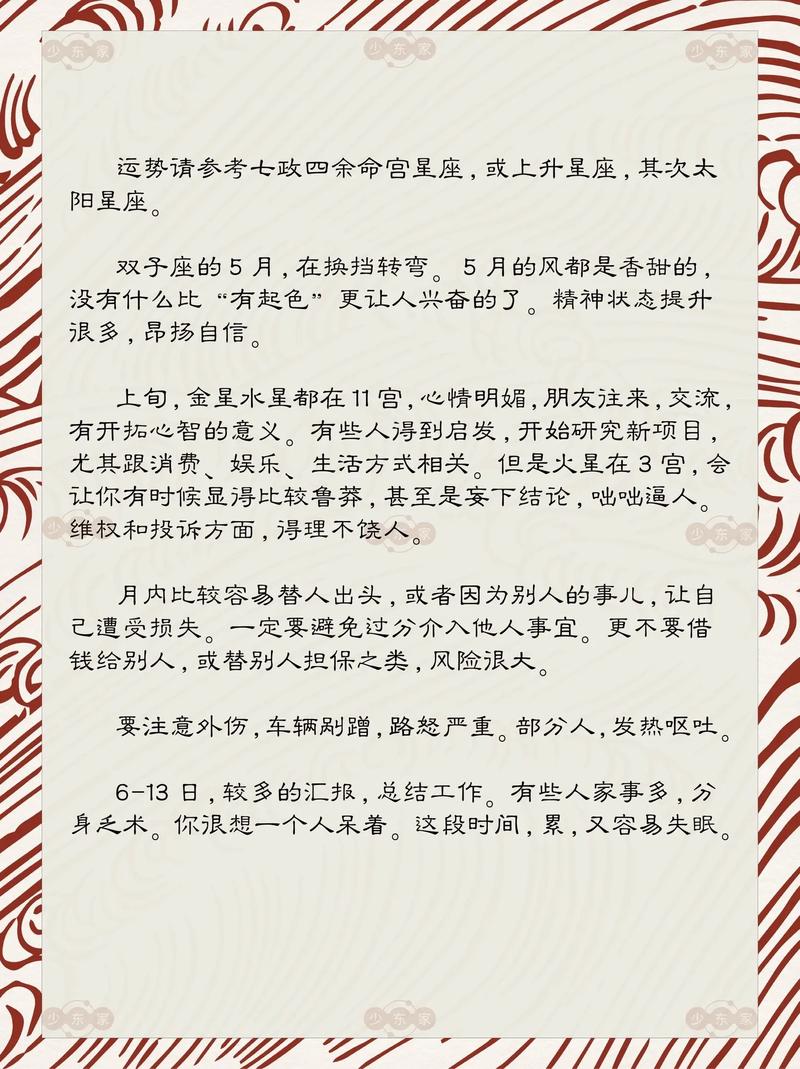 少东家 少东家 少东家
运势请参考七政四余命宫星座，或上升星座，其次太
阳星座。
双子座的 5 月，在换挡转弯。 5 月的风都是香甜的，
没有什么比“有起色”更让人兴奋的了。精神状态提升
很多，昂扬自信。
上旬，金星水星都在 11 宫，心情明媚，朋友往来，交流，
有开拓心智的意义。有些人得到启发，开始研究新项目，
尤其跟消费、娱乐、生活方式相关。但是火星在 3 宫，会
让你有时候显得比较鲁莽，甚至是妄下结论，咄咄逼人。
维权和投诉方面，得理不饶人。
少东家 少东家 少东家
月内比较容易替人出头，或者因为别人的事儿，让自
己遭受损失。一定要避免过分介入他人事宜。更不要借
钱给别人，或替别人担保之类，风险很大。
要注意外伤，车辆剐蹭，路怒严重。部分人，发热呕吐。
6-13 日，较多的汇报，总结工作。有些人家事多，分
身乏术。你很想一个人呆着。这段时间，累，又容易失眠。
少东家 少东家 少东家